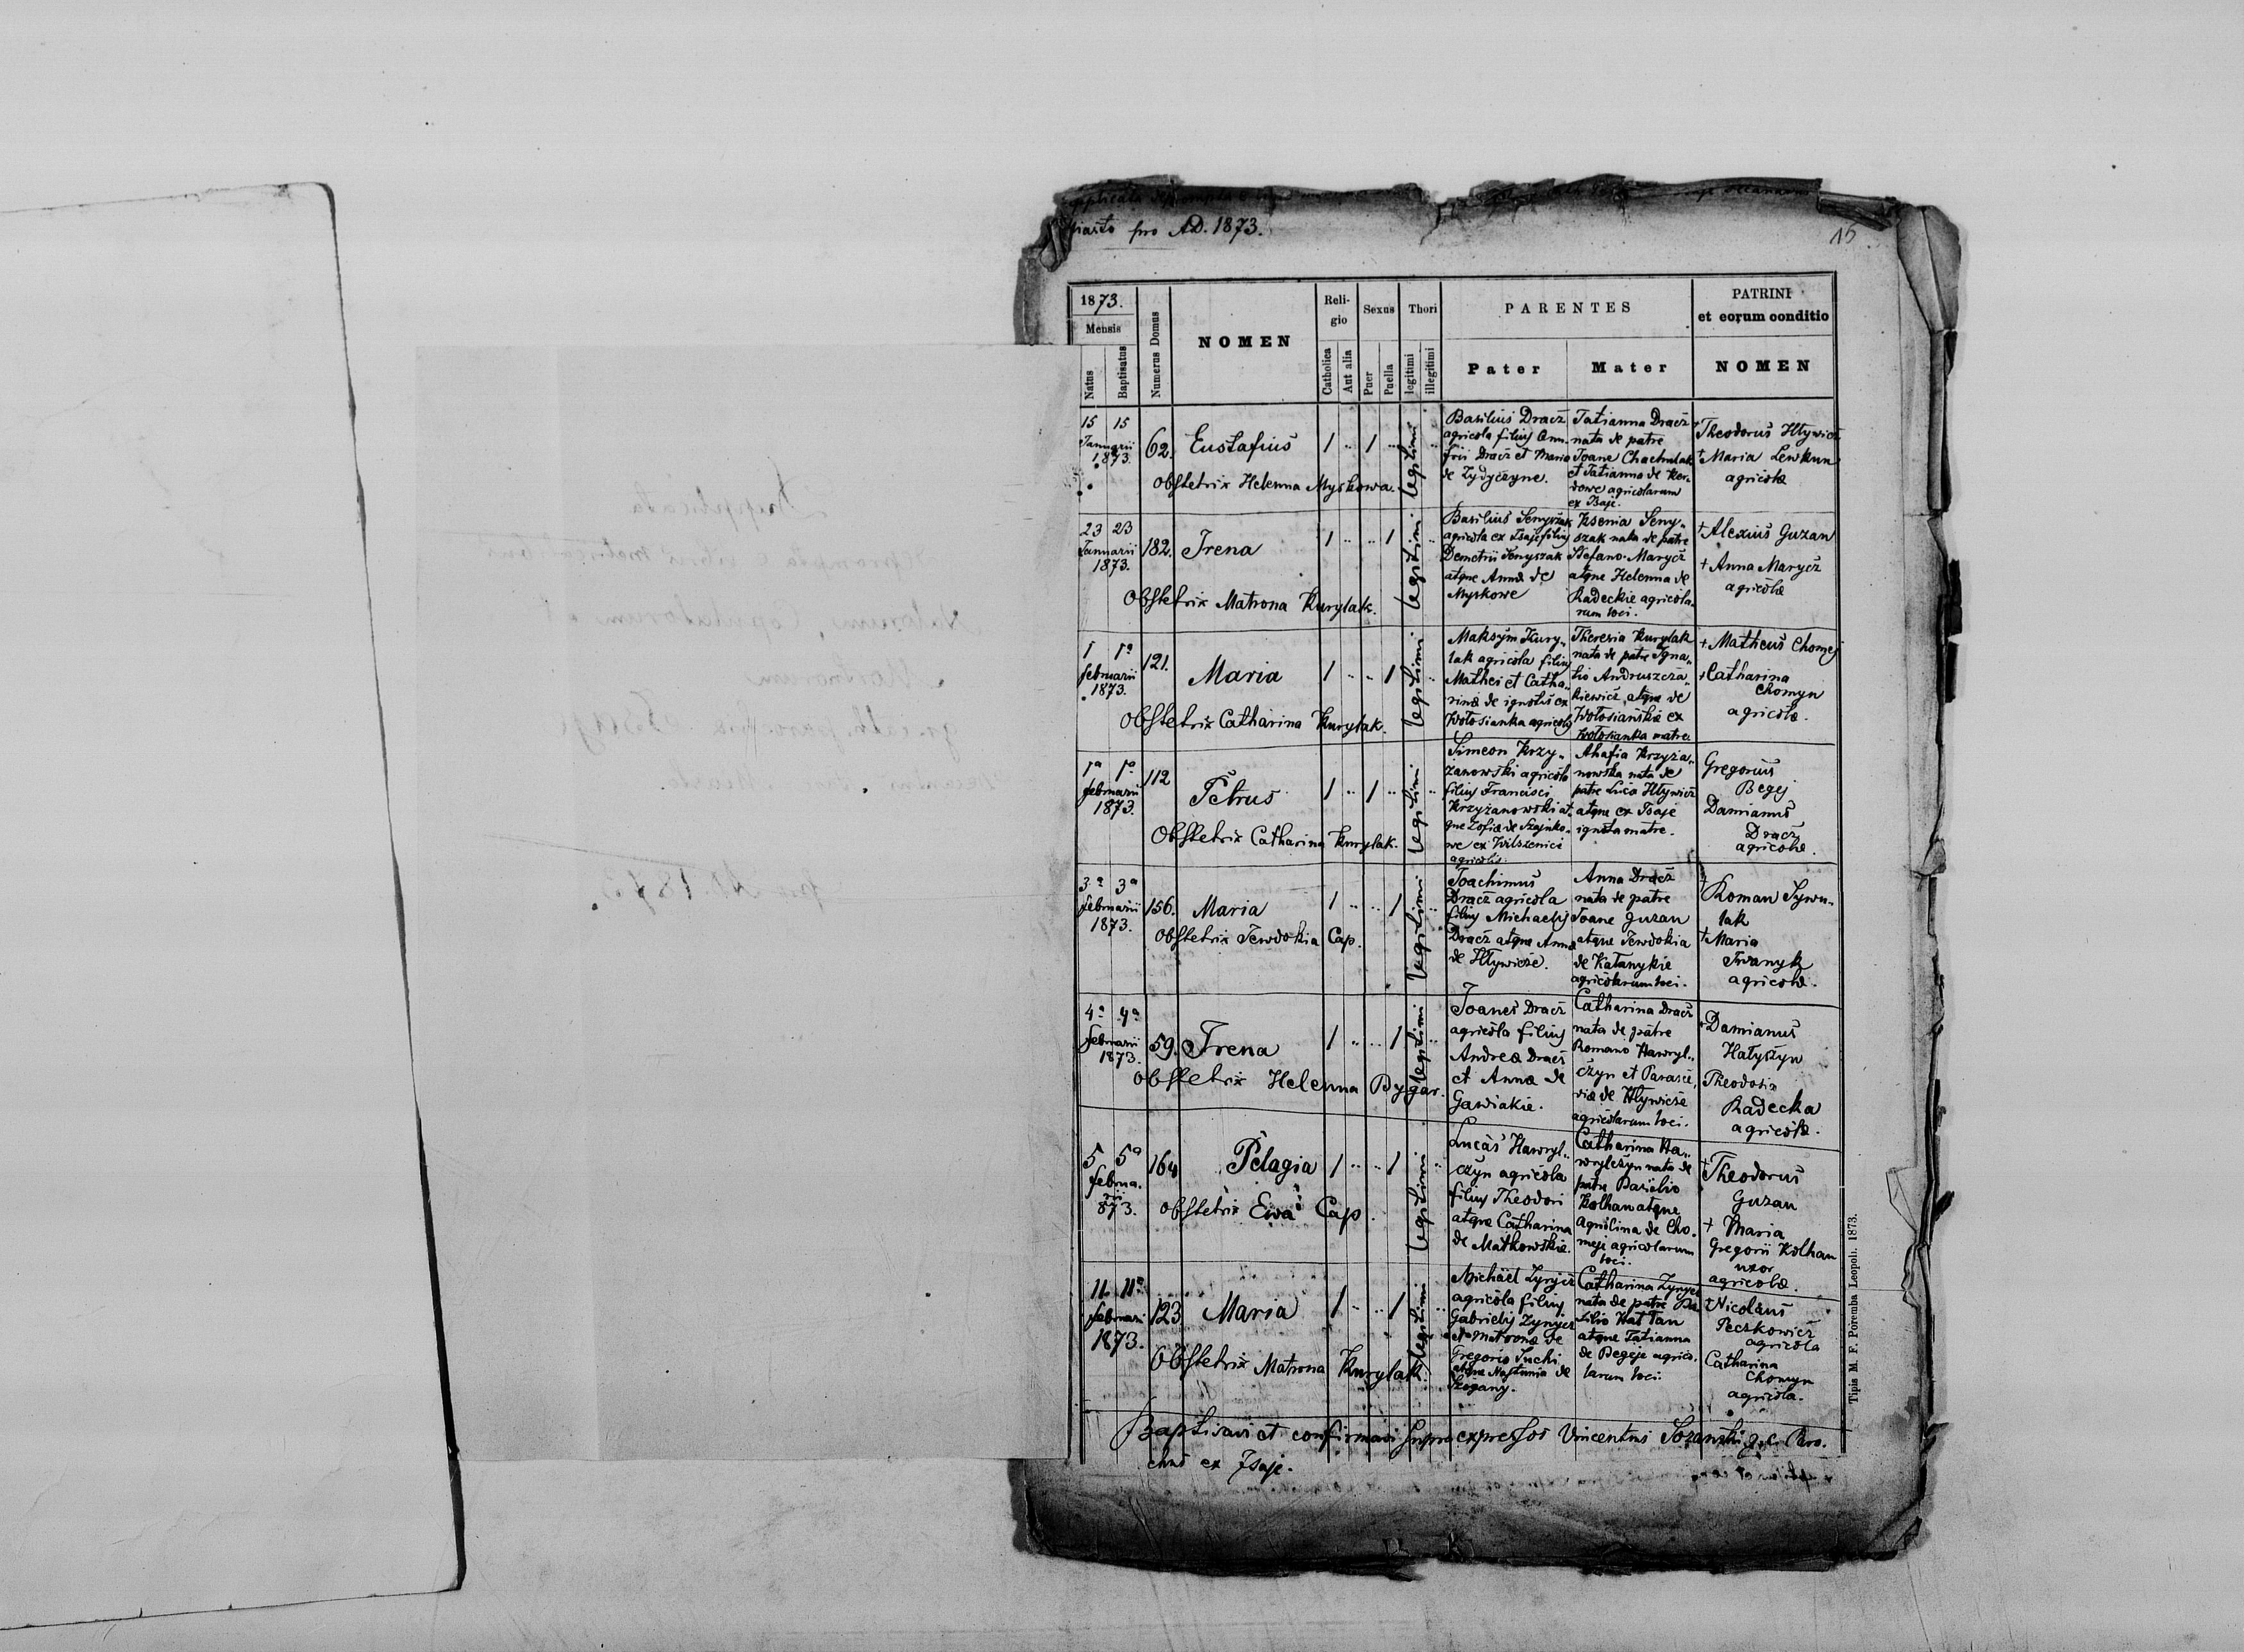 piasto pro AD. 1873.
15
1873.
Mensis
Natus
Baptisatus
Numerus Domus
NOMEN
Religio
Catholica
Aut alia
Sexus
Puer
Puella
Thori
legitimi
illegitimi
PARENTES
Pater
Mater
PATRINI
et eorum conditio
NOMEN
15 15
Januarii
1873.
62.
Eustafius
1 .. 1 ..
legitimi
Obstetrix Helenna Myskowa.
Basilius Dracz
agricola filius Onu-
frii Dracz et Maria
de Zydyczyne.
Tatianna Dracz
nata de patre
Joane Chachulak
et Tatianna de
agricolarum
ex Isaje.
Theodorus Hlywicz
† Maria Lewkun
agricolæ
23 23
Januarii
1873.
182.
Irena
1 .. .. 1
legitimi
Obstetrix Matrona Kurylak.
Basilius Senyszak
agricola ex Isaje filius
Demetrii Senyszak
atque Anna de
Myskowe
Ksenia Seny-
szak nata de patre
Stefano Marycz
atque Helenna de
Radeckie agricola-
rum loci.
† Alexius Guzan
+ Anna Marycz
agricolæ
1 1ª
februarii
1873.
121.
Maria
1 .. .. 1
legitimi
Obstetrix Catharina Kurylak.
Maksym Kury-
lak agricola filius
Mathei et Catha-
rinæ de ignotis ex
Wołosianka agricolis
Theresia Kurylak
nata de patre Igna-
tio Andruszcza-
kiewicz, atque de
Wołosiańskie ex
Wołosianka matre.
+ Matheus Chomej
+ Catharina
Chomyn
agricolæ.
1ª 1ª
februarii
1873.
112
Petrus
1 .. 1 ..
legitimi
Obstetrix Catharina Kurylak.
Simeon Krzy-
żanowski agricola
filius Francisci
Krzyżanowski at-
que Zofiæ de Szajnko-
we ex Wilszenici
agricolis.
Ahafia Krzyża-
nowska nata de
patre Luca Hlywicz
atque ex Isaje
ignota matre.
Gregorius
Begej
Damianus
Dracz
agricolæ.
3ª 3ª
februarii
1873.
156.
Maria
1 .. .. 1
legitimi
Obstetrix Jewdokia Cap.
Joachimus
Dracz agricola
filius Michaelis
Dracz atque Anna
de Hływicze.
Anna Dracz
nata de patre
Joane Guzan
atque Jewdokia
de Katanykie
agricolarum loci.
Roman Sywu-
lak
† Maria
Iwanyk
agricolæ.
4ª 4ª
februarii
1873.
59.
Irena
1 .. .. 1
legitimi
Obstetrix Helenna Bygar.
Joanes Dracz
agricola filius
Andreæ Dracz
et Annæ de
Gawiakie.
Catharina Dracz
nata de patre
Romano Hawryl-
czyn et Parasce-
viæ de Hlywicze
agricolarum loci.
Damianus
Hałyszyn
Theodosia
Radecka
agricolæ.
5 5ª
februa-
rii
873.
164
Pelagia
1 .. .. 1
legitimi
Obstetrix Ewa Cap.
Lucas Hawryl-
czyn agricola
filius Theodori
atque Catharina
de Matkowskie.
Catharina Ha-
wrylczyn nata de
patre Basilio
Kolhan atque
Agrilina de Cho-
meje agricolarum
loci.
† Theodorus
Guzan
+ Maria
Gregorii Kolhan
uxor
agricolæ.
11 11ª
februari
1873.
123
Maria
1 .. .. 1
legitimi
Obstetrix Matrona Kurylak.
Michael Zynycz
agricola filius
Gabrielis Zynycz
et Matronæ de
Gregorio Suchi
atque Nastunia de
Catharina Zynycz
nata de patre Ba-
silio Hattan
atque Tatianna
de Begeje agrico-
larum loci.
† Nicolaus
Peczkowicz
agricola
Catharina
Chomyn
agricola.
Baptisavi et confirmavi supra expressos Vincentius Sozański g. c. Paro-
chus ex Isaje.
Tipis M. F. Poremba Leopoli. 1873.